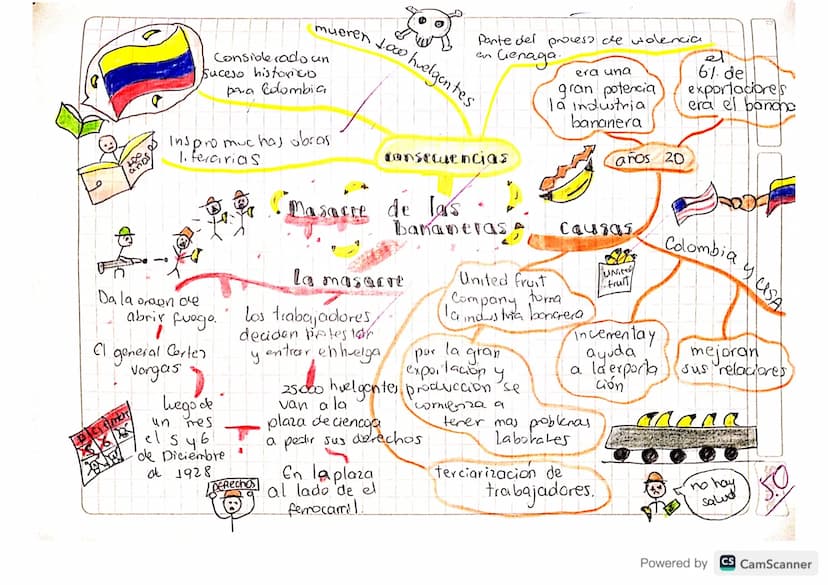 mueren 1000 huelgentes
Parte del proceso de violencia
en Cienaga.
Considerado un
suceso historico
para Colombia
Inspiro muchas obras
literarias
100
años
consecuencias
era una
gran potencia
la industria
bananera
el
6% de
exportadores
era el banano
años 20
Masacre de las
bananeras
causas
Colombia y USA
la masacre
United fruit
Company toma
la industria bananera
United
fruit
Da la orden de
abrir fuego.
El general Cortez
Vargas
los trabajadores
deciden protestar
y entrar en huelga
incrementa y
ayuda
a la exporta
ción
mejoran
sus relaciones
por la gran
exportación y
producción se
comienza a
tener mas problemas
laborales
25000 huelgentes
van a la
plaza de cienega
a pedir sus derechos
luego de
un mes
el 5 y 6
de Diciembre
de 1928
En la plaza
al lado de el
ferrocarril.
DERECHOS
terciarización de
trabajadores.
no hay
salud
5.0
Powered by CS CamScanner